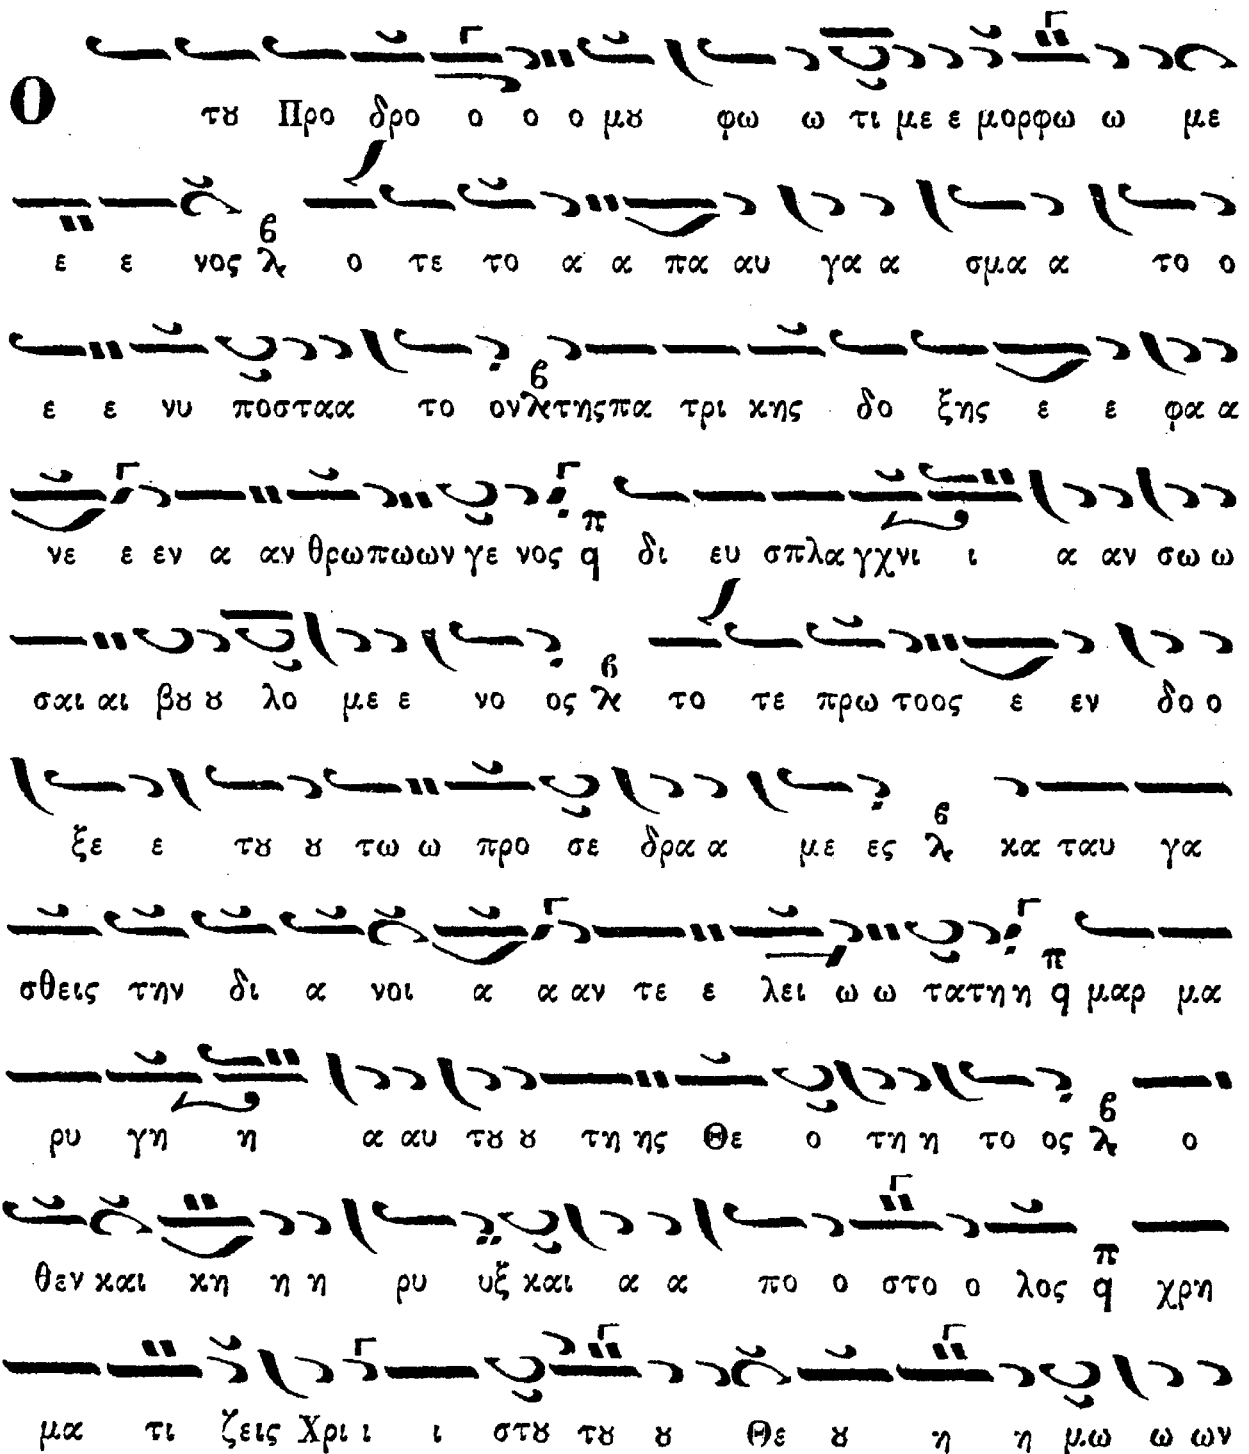 Ο τȣ Προ δρο ο ο ο μȣ φω ω τι με ε μορφω ω με
ε ε νος ϐ λ ο τε το α α πα αυ γα α σμα α το ο
ε ε νυ ποσταα το ον ϐ λ της πα τρι κης δο ξης ε ε φα α
νε ε εν α αν θρωπωων γε νος π q δι ευ σπλα γχνι ι α αν σω ω
σαι αι βȣ ȣ λο με ε νο ος ϐ λ το τε πρω τοος ε εν δο ο
ξε ε τȣ ȣ τω ω προ σε δρα α με ες ϐ λ κα ταυ γα
σθεις την δι α νοι α α αν τε ε λει ω ω τατη η π q μαρ μα
ρυ γη η α αυ τȣ ȣ τη ης Θε ο τη η το ος ϐ λ ο
θεν και κη η η ρυ υξ και α α πο ο στο ο λος π q χρη
μα τι ζεις Χρι ι ι στȣ τȣ ȣ Θε ȣ η η μω ω ων